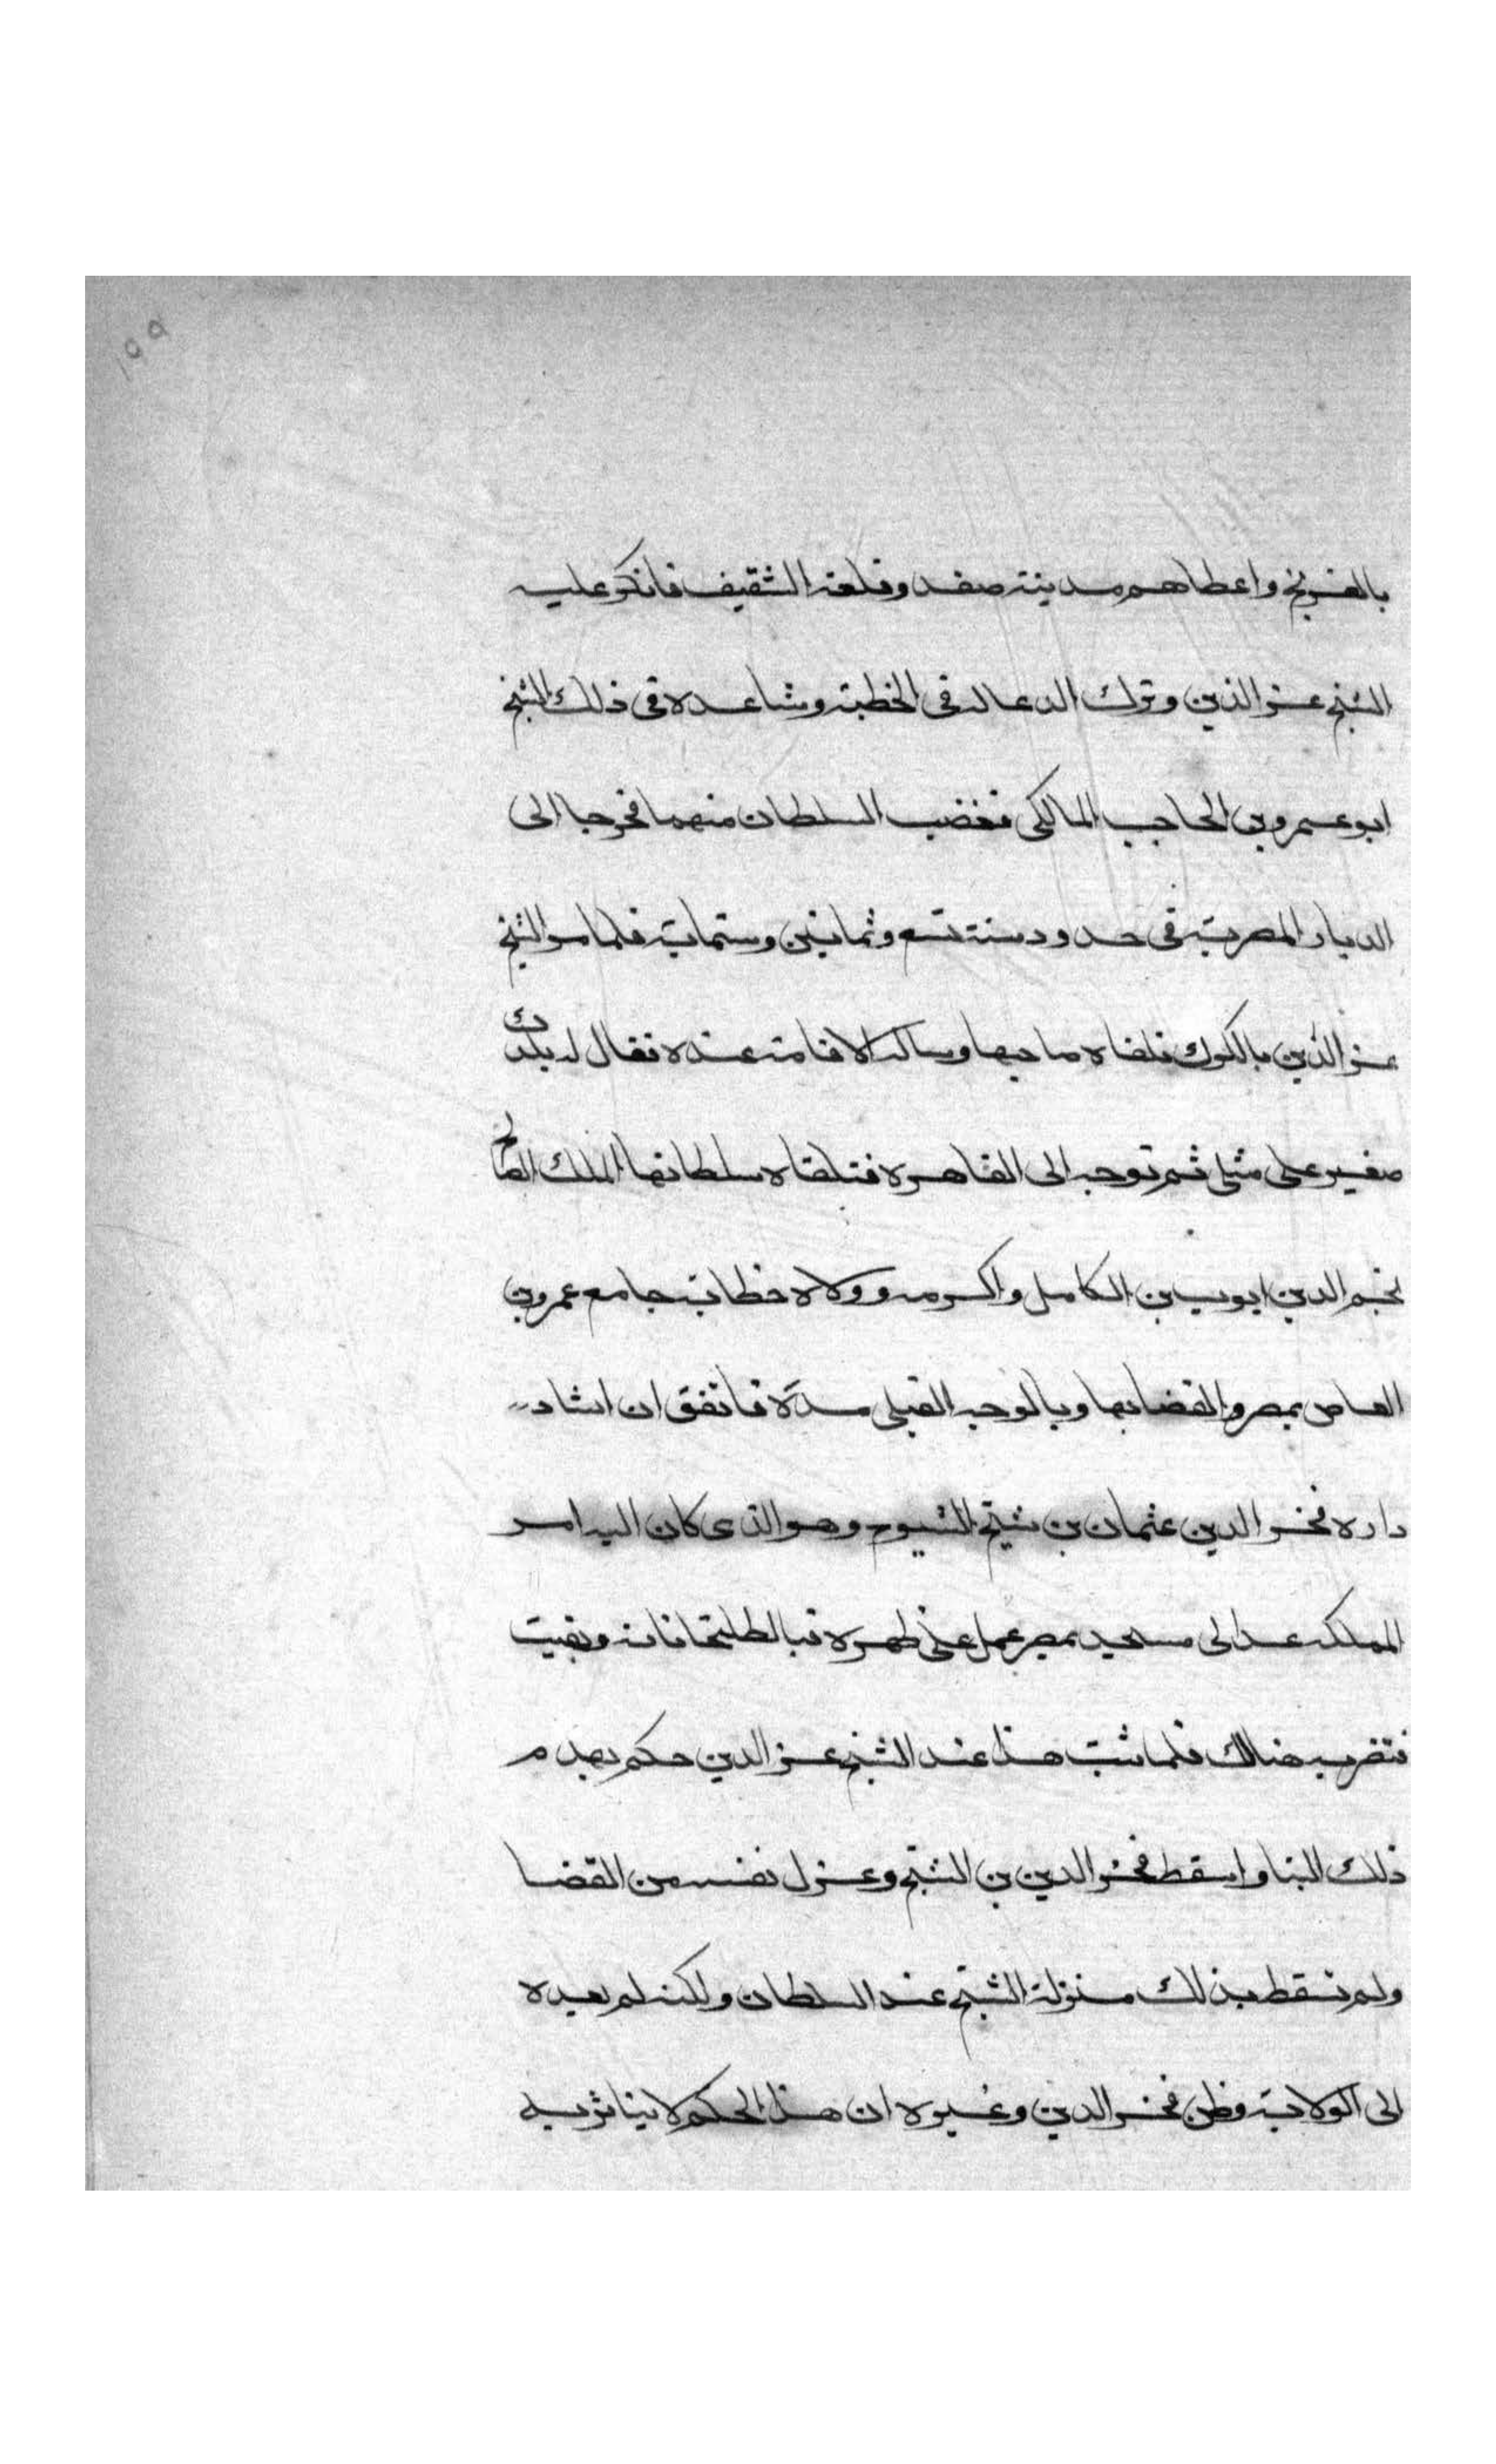 ١٥٩
بالفرنج واعطاهم مدينة صفد وقلعة الشقيف فانكر عليه
الشيخ عز الدين وترك الدعا له في الخطبة وشاعده في ذلك الشيخ
ابو عمرو بن الحاجب المالكي فغضب السلطان منهما فخرجا الى
الديار المصرية في حدود سنة تسع وثمانين وستماية فلما مر الشيخ
عز الدين بالكرك تلقاه صاحبها وساله الاقامة عنده فقال له بلدك
صغير على مثلي ثم توجه الى القاهرة فتلقاه سلطانها الملك الصالح
نجم الدين ايوب بن الكامل واكرمه وولاه خطابة جامع عمرو بن
العاص بمصر والقضا بها وبالوجه القبلي مدة فاتفق ان استاد
داره فخر الدين عثمان بن شيخ الشيوخ وهو الذي كان اليه امر
المملكة عمد الى مسجد بمصر عمل على ظهره قبا لطبلخاناة وبقيت
تضرب هناك فلما ثبت هذا عند الشيخ عز الدين حكم بهدم
ذلك البنا واسقط فخر الدين بن الشيخ وعزل نفسه من القضا
ولم تسقط بذلك منزلة الشيخ عند السلطان ولكنه لم يعده
الى الولاية وظن فخر الدين وغيره ان هذا الحكم لا يتاثر به